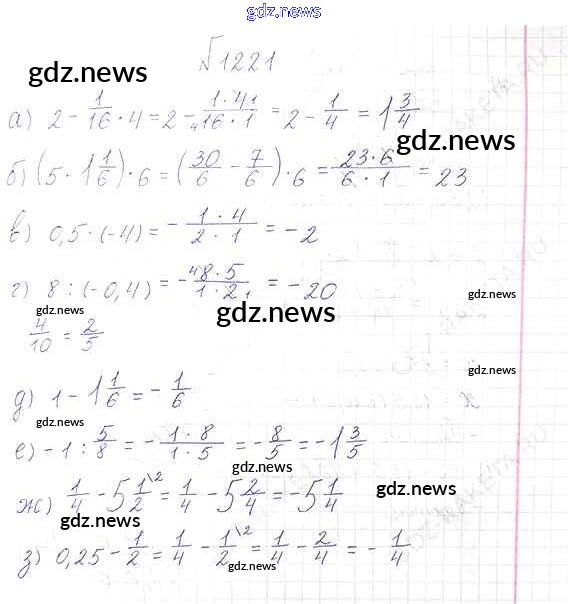 gdz.news
№1221
gdz.news
а) 2 - 1/16 · 4 = 2 - 1·4 1/4 16·1 = 2 - 1/4 = 1 3/4
gdz.news
б) (5 · 1 1/6) · 6 = (30/6 - 7/6) · 6 = 23·6/6·1 = 23
в) 0,5 · (-4) = - 1·4/2·1 = -2
г) 8 : (-0,4) = - 4 8·5/1·2 1 = -20
gdz.news
gdz.news
gdz.news
4/10 = 2/5
д) 1 - 1 1/6 = - 1/6
gdz.news
е) -1 : 5/8 = - 1·8/1·5 = - 8/5 = -1 3/5
gdz.news
ж) 1/4 - 5 1/2 \2 = 1/4 - 5 2/4 = -5 1/4
gdz.news
gdz.news
з) 0,25 - 1/2 = 1/4 - 1/2 \2 = 1/4 - 2/4 = - 1/4
gdz.news